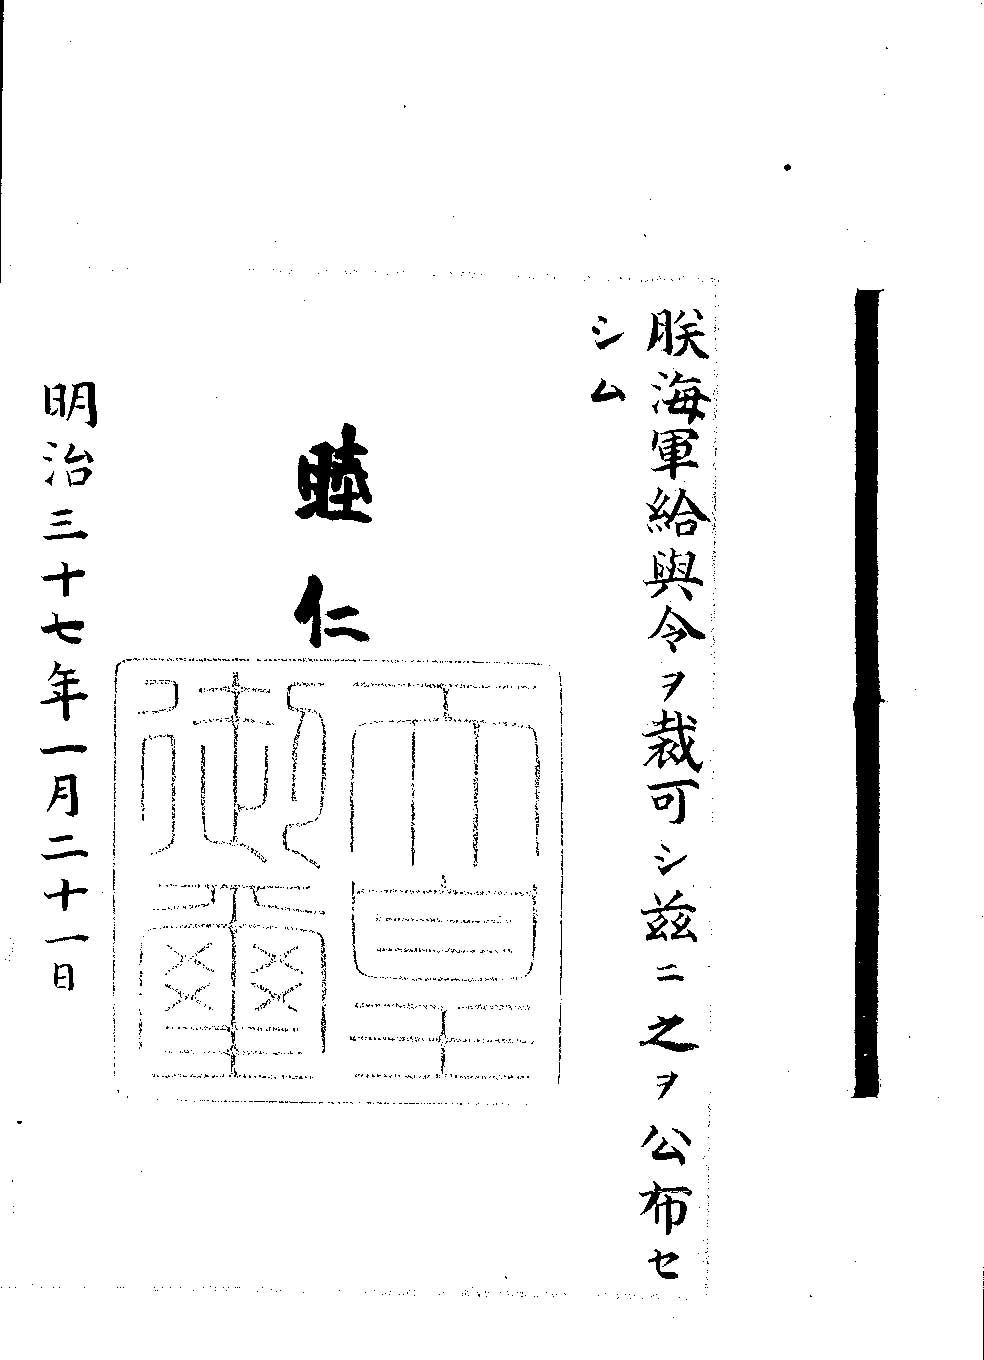 朕海軍給與令ヲ裁可シ茲ニ之ヲ公布セ
シム
睦仁
天皇
御璽
明治三十七年一月二十一日